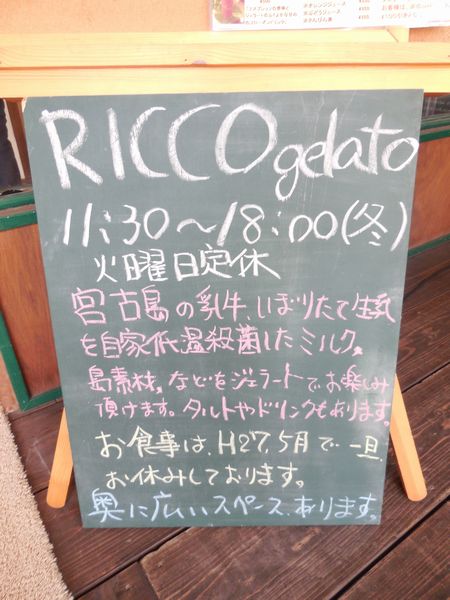 RICCO gelato
11:30〜18:00(冬)
火曜日定休
宮古島の乳牛、しぼりたて生乳
を自家低温殺菌したミルク、
島素材、などをジェラートでお楽しみ
頂けます。タルトやドリンクもあります。
お食事は、H27,5月で一旦
お休みしております。
奥に広いスペース、あります。